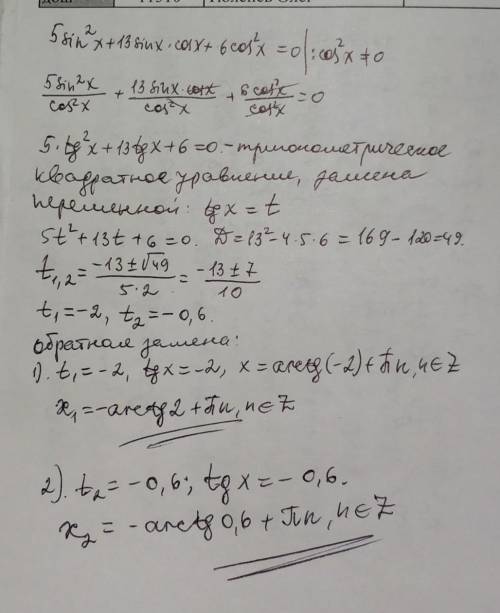 5sin²x+13sinx·cosx+6cos²x=0 |:cos²x≠0
5sin²x/cos²x + 13sinx·cosx/cos²x + 6cos²x/cos²x = 0
5·tg²x+13tgx+6=0.-тригонометрическое
квадратное уравнение, замена
переменной: tgx=t
5t²+13t+6=0. D=13²-4·5·6=169-120=49.
t₁,₂=(-13±√49)/(5·2)=(-13±7)/10
t₁=-2, t₂=-0,6.
обратная замена:
1). t₁=-2, tgx=-2, x=arctg(-2)+πn, n∈Z
x₁=-arctg2+πn, n∈Z
2). t₂=-0,6; tgx=-0,6.
x₂=-arctg0,6+πn, n∈Z